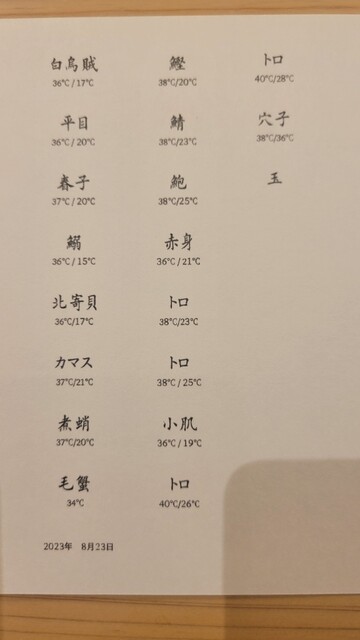 白烏賊
36℃ / 17℃
平目
36℃ / 20℃
春子
37℃ / 20℃
鰯
36℃ / 15℃
北寄貝
36℃/17℃
カマス
37℃/21℃
煮蛸
37℃/20℃
毛蟹
34℃
鰹
38℃/20℃
鯖
38℃/23℃
鮑
38℃/25℃
赤身
36℃ / 21℃
トロ
38℃/23℃
トロ
38℃ / 25℃
小肌
36℃ / 19℃
トロ
40℃/26℃
トロ
40℃/28℃
穴子
38℃/36℃
玉
2023年 8月23日